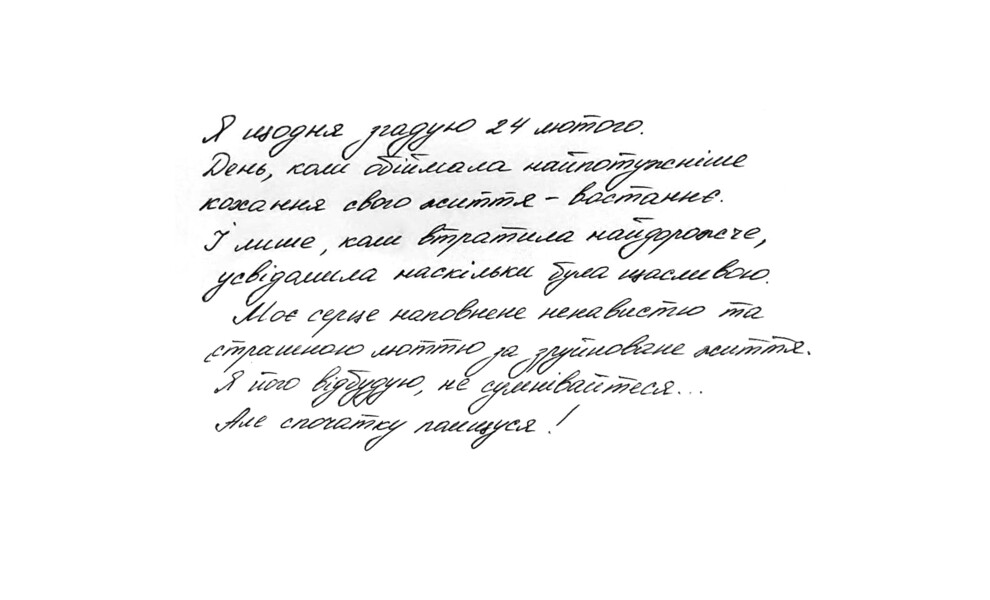 Я щодня згадую 24 лютого.
День, коли обіймала найпотужніше
кохання свого життя – востаннє.
І лише, коли втратила найдорожче,
усвідомила наскільки була щасливою.
Моє серце наповнене ненавистю та
страшною люттю за зруйноване життя.
Я його відбудую, не сумнівайтеся...
Але спочатку помщуся!